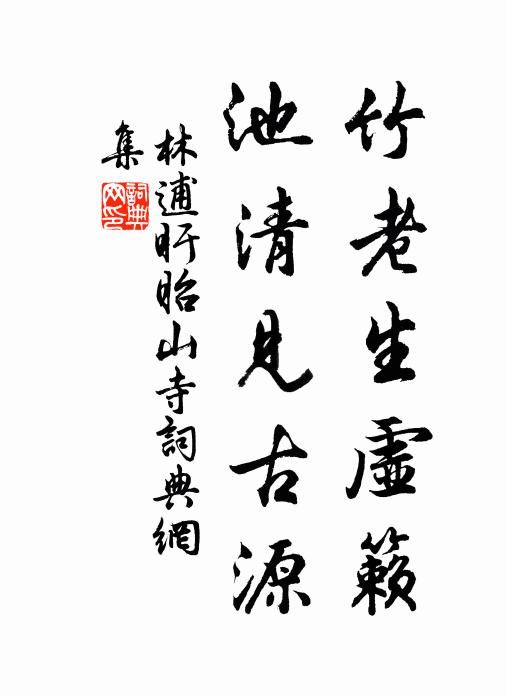 竹老生虛籟
池清見古源
林逋盱眙山寺詞典網
集
詞典
网印